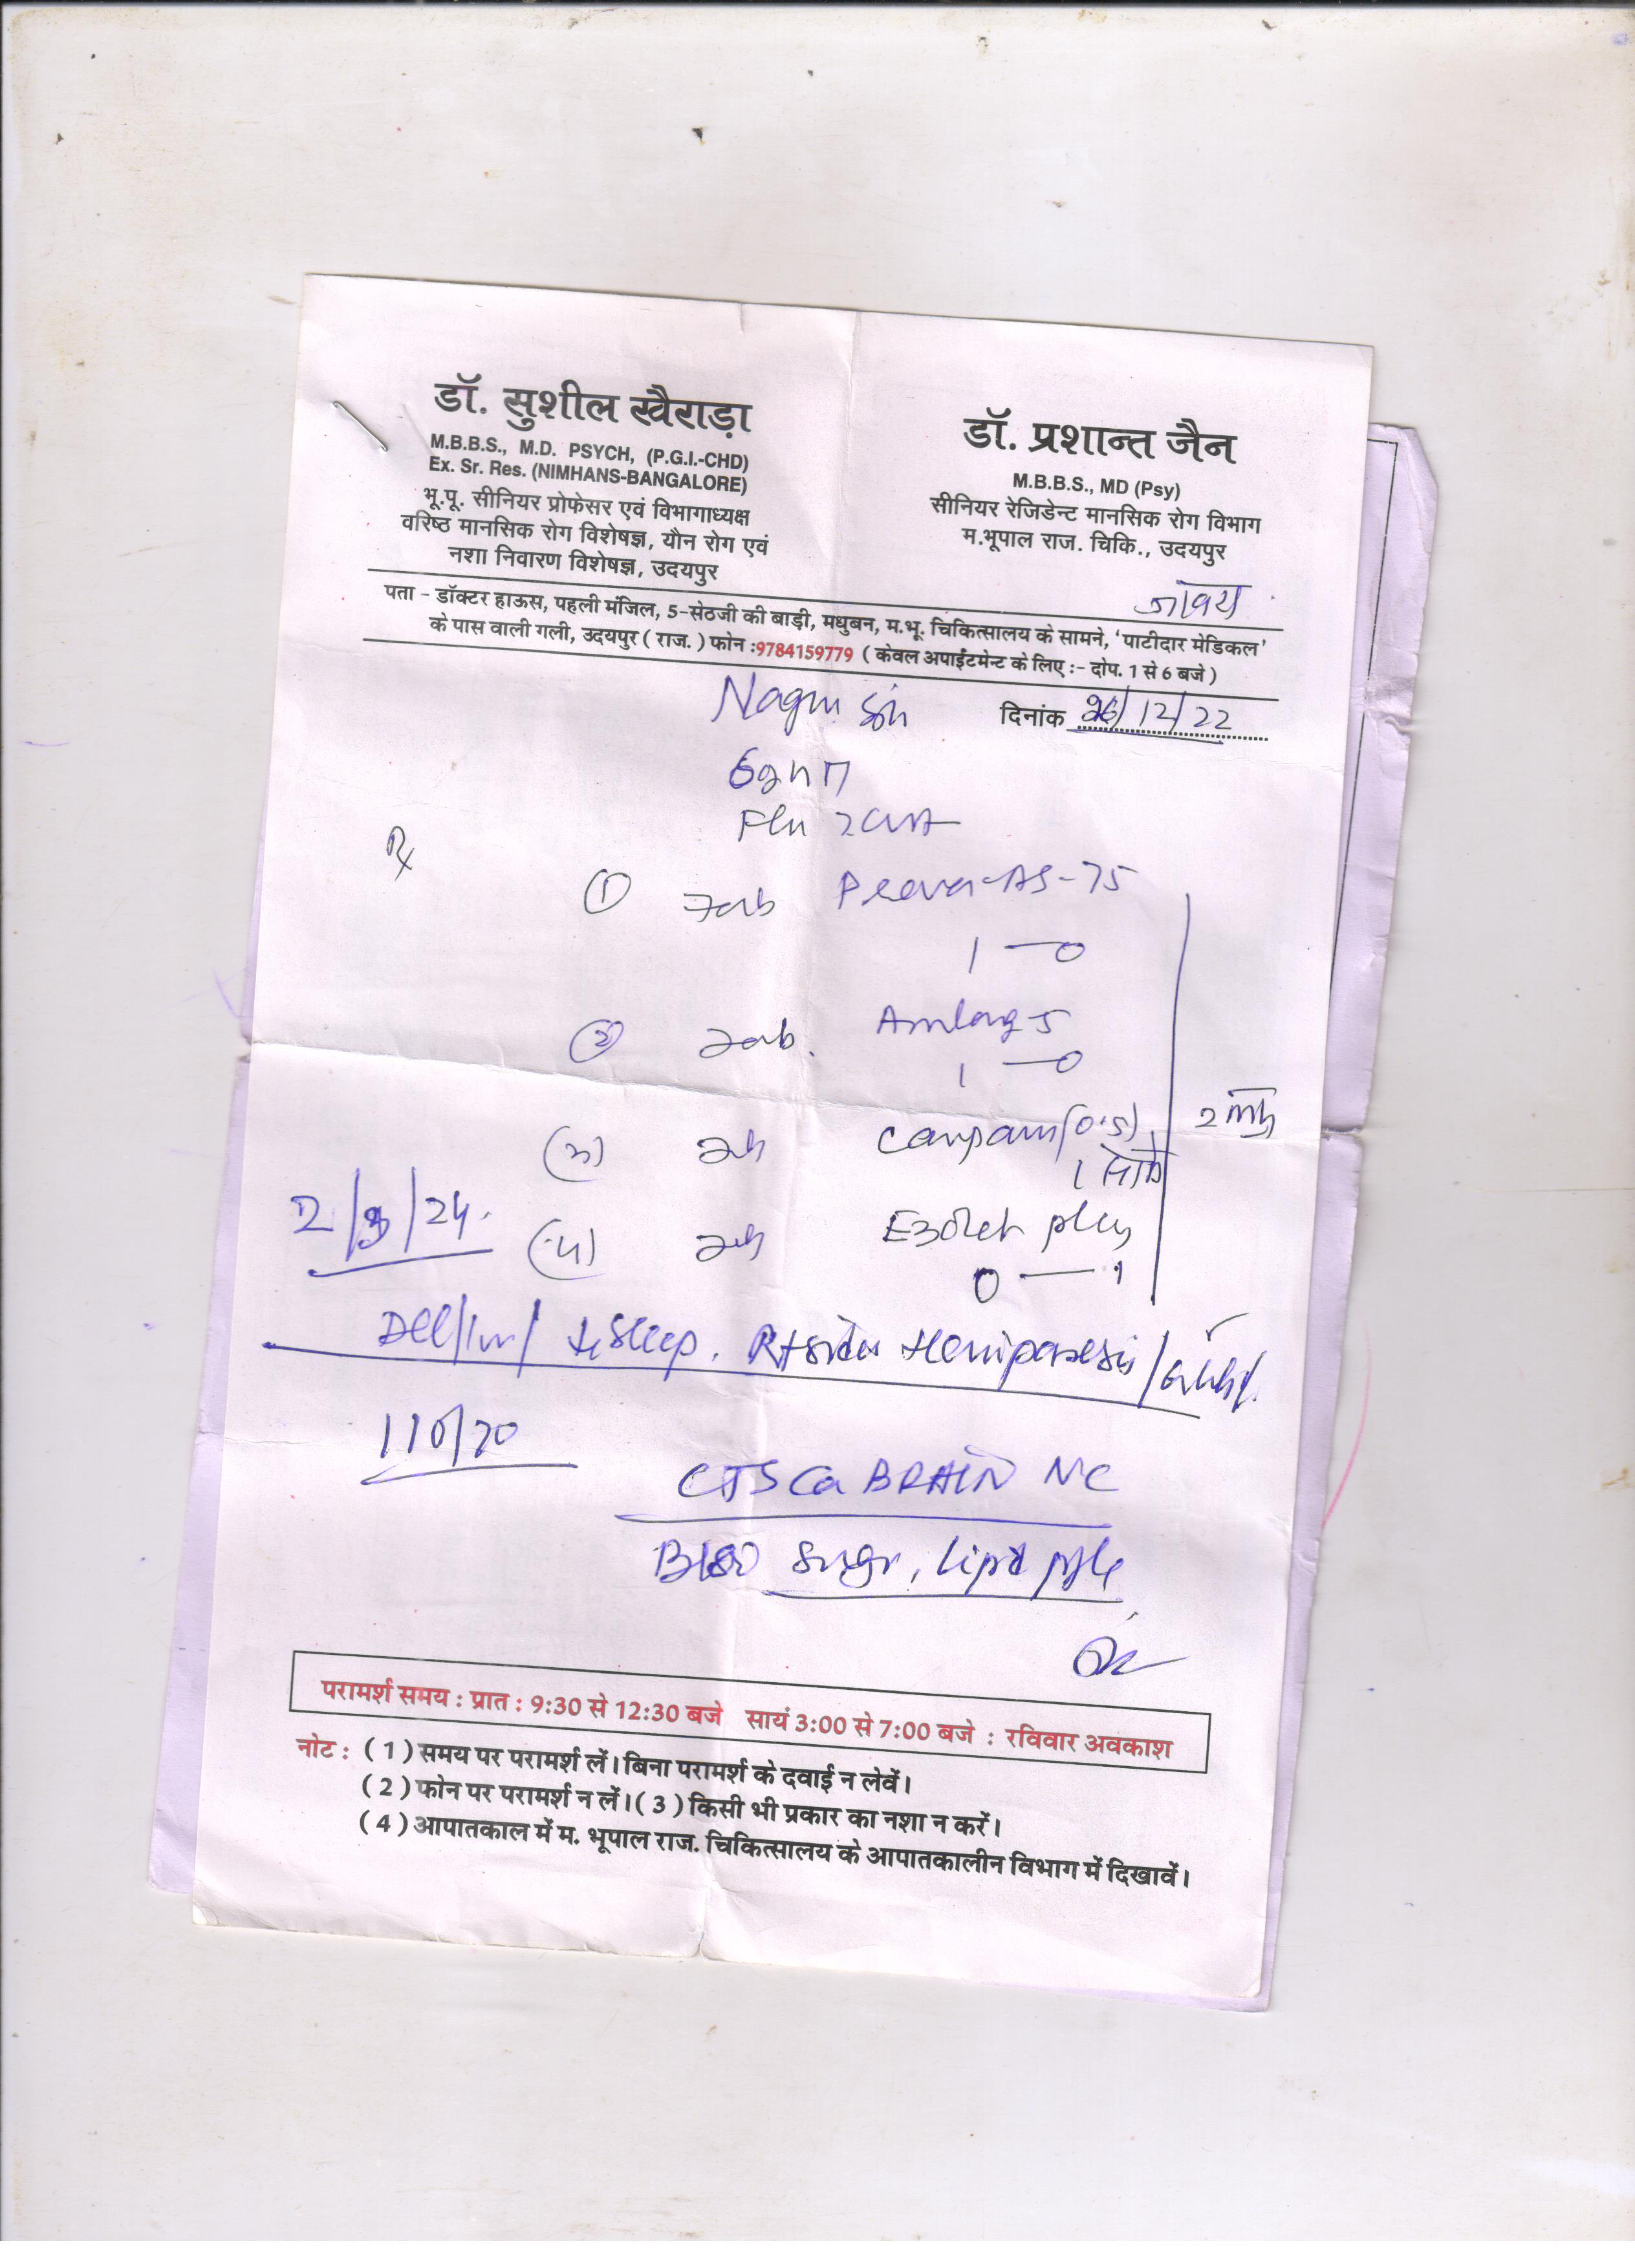 डॉ. सुशील खैराड़ा
M.B.B.S., M.D. PSYCH, (P.G.I.-CHD)
Ex. Sr. Res. (NIMHANS-BANGALORE)
भू.पू. सीनियर प्रोफेसर एवं विभागाध्यक्ष
वरिष्ठ मानसिक रोग विशेषज्ञ, यौन रोग एवं
नशा निवारण विशेषज्ञ, उदयपुर
डॉ. प्रशान्त जैन
M.B.B.S., MD (Psy)
सीनियर रेजिडेन्ट मानसिक रोग विभाग
म.भूपाल राज. चिकि., उदयपुर
पता - डॉक्टर हाऊस, पहली मंजिल, 5-सेठजी की बाड़ी, मधुबन, म.भू. चिकित्सालय के सामने, 'पाटीदार मेडिकल'
के पास वाली गली, उदयपुर ( राज. ) फोन :9784159779 ( केवल अपाईंटमेन्ट के लिए :- दोप. 1 से 6 बजे )
दिनांक 26/12/22
Rx
① Tab
AS-75
1 — 0
② Tab. Amlong-5
1 — 0
(3) (0.5)
1
2
2/3/24.
(4) plus
0 — 1
sleep. Rt side Hemiparesis
110/70
CT Scan BRAIN NC
Blood Sugar, Lipid profile
परामर्श समय : प्रात : 9:30 से 12:30 बजे सायं 3:00 से 7:00 बजे : रविवार अवकाश
नोट : ( 1 ) समय पर परामर्श लें। बिना परामर्श के दवाई न लेवें।
( 2 ) फोन पर परामर्श न लें। ( 3 ) किसी भी प्रकार का नशा न करें।
( 4 ) आपातकाल में म. भूपाल राज. चिकित्सालय के आपातकालीन विभाग में दिखावें।